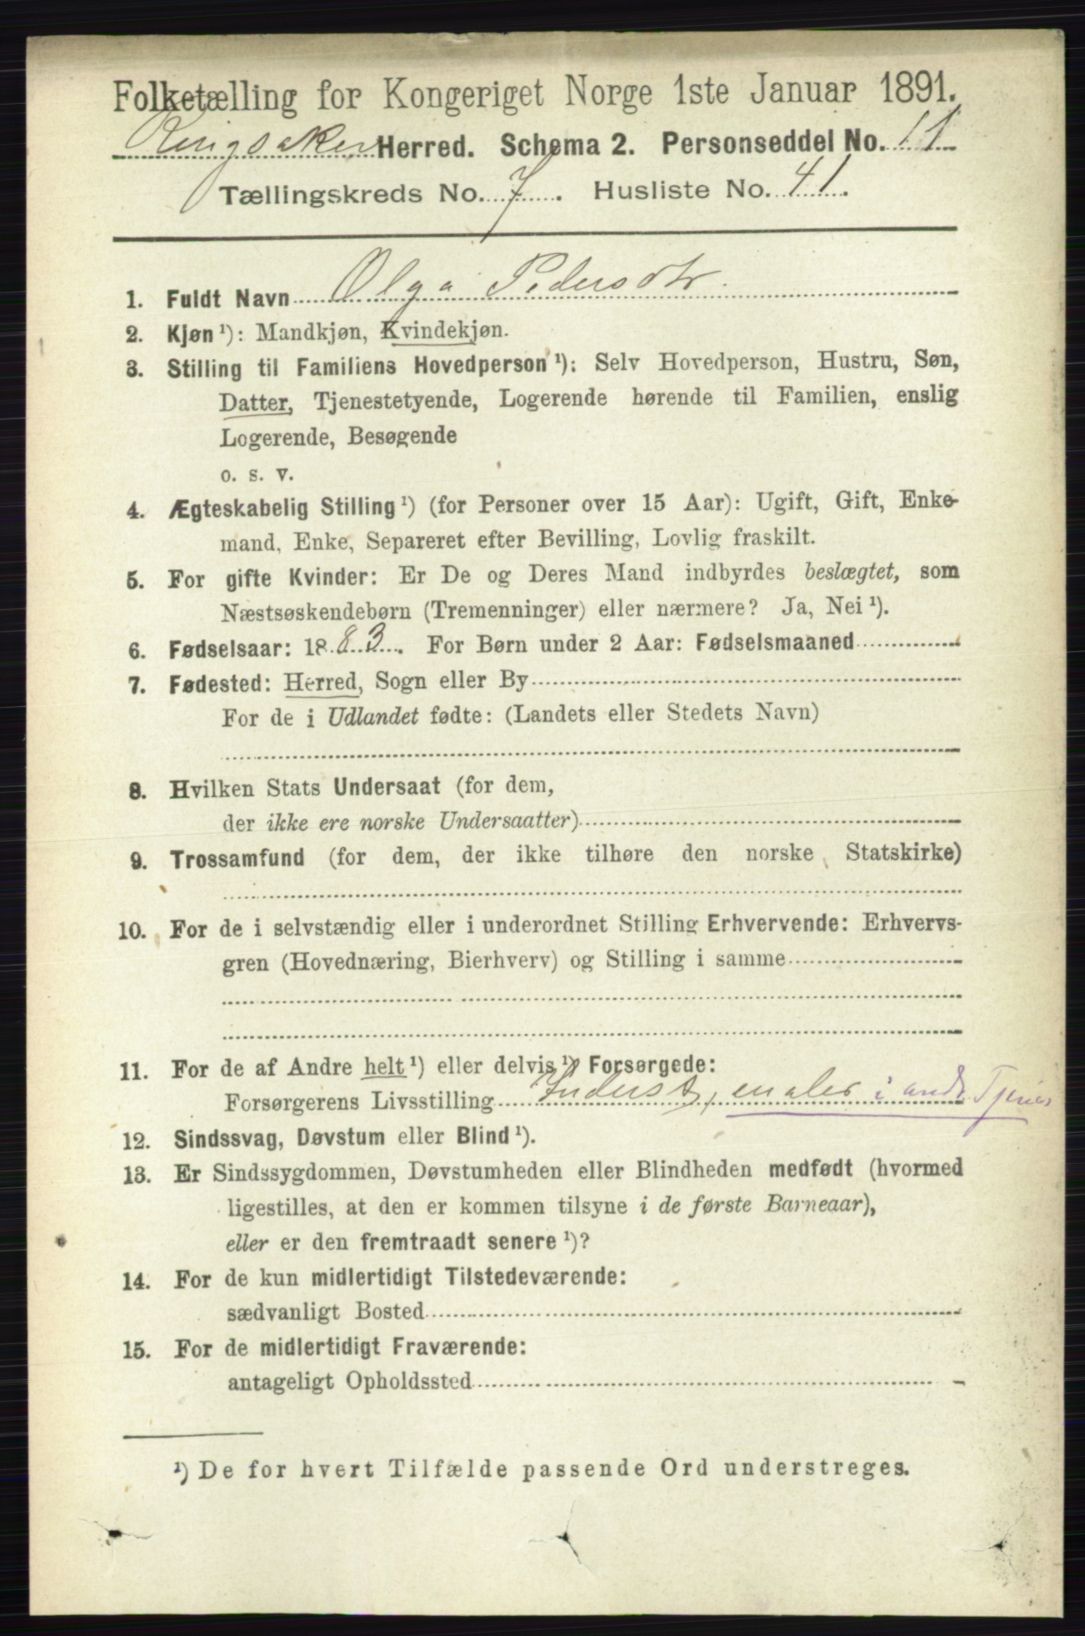 Folketælling for Kongeriget Norge 1ste Januar 1891.
Ringsaker Herred. Schema 2. Personseddel No. 11
Tællingskreds No. 7. Husliste No. 41.
1. Fuldt Navn Olga Pedersdtr.
2. Kjøn ¹): Mandkjøn, Kvindekjøn.
3. Stilling til Familiens Hovedperson ¹): Selv Hovedperson, Hustru, Søn,
Datter, Tjenestetyende, Logerende hørende til Familien, enslig
Logerende, Besøgende
o. s. v.
4. Ægteskabelig Stilling ¹) (for Personer over 15 Aar): Ugift, Gift, Enke-
mand, Enke, Separeret efter Bevilling, Lovlig fraskilt.
5. For gifte Kvinder: Er De og Deres Mand indbyrdes beslægtet, som
Næstsøskendebørn (Tremenninger) eller nærmere? Ja, Nei ¹).
6. Fødselsaar: 1883. For Børn under 2 Aar: Fødselsmaaned
7. Fødested: Herred, Sogn eller By
For de i Udlandet fødte: (Landets eller Stedets Navn)
8. Hvilken Stats Undersaat (for dem,
der ikke ere norske Undersaatter)
9. Trossamfund (for dem, der ikke tilhøre den norske Statskirke)
10. For de i selvstændig eller i underordnet Stilling Erhvervende: Erhvervs-
gren (Hovednæring, Bierhverv) og Stilling i samme
11. For de af Andre helt ¹) eller delvis ¹) Forsørgede:
Forsørgerens Livsstilling Inderst, i
12. Sindssvag, Døvstum eller Blind ¹).
13. Er Sindssygdommen, Døvstumheden eller Blindheden medfødt (hvormed
ligestilles, at den er kommen tilsyne i de første Barneaar),
eller er den fremtraadt senere ¹)?
14. For de kun midlertidigt Tilstedeværende:
sædvanligt Bosted
15. For de midlertidigt Fraværende:
antageligt Opholdssted
¹) De for hvert Tilfælde passende Ord understreges.